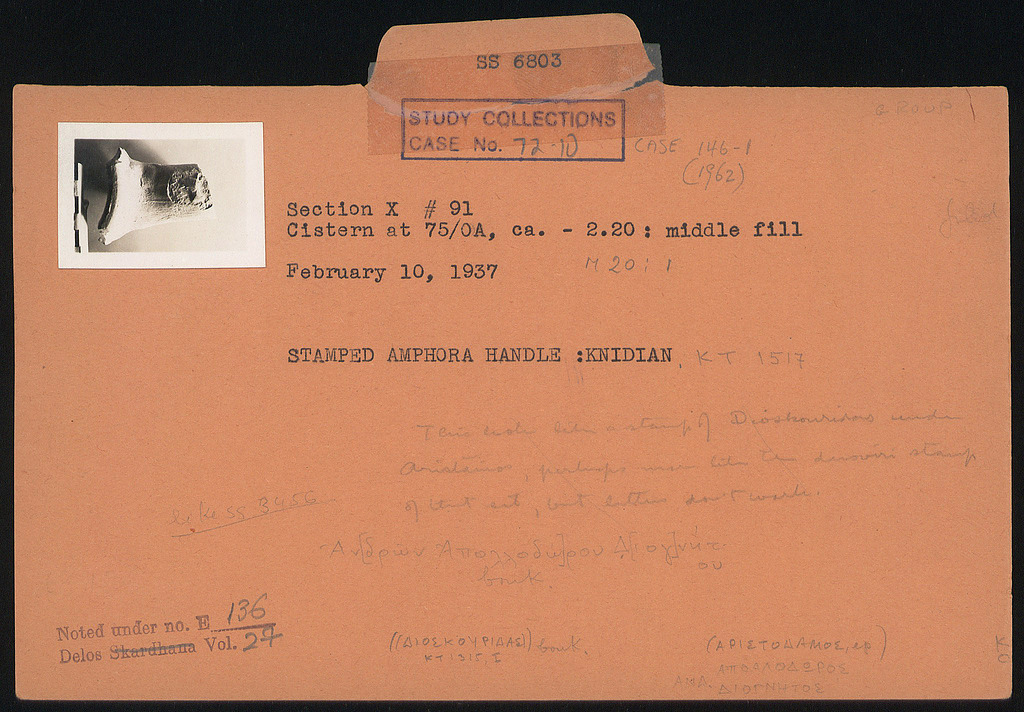 SS 6803
GROUP
STUDY COLLECTIONS
CASE No. 72-10
CASE 146-1
(1962)
Section X # 91
Cistern at 75/OA, ca. - 2.20 : middle fill
February 10, 1937
M 20:1
STAMPED AMPHORA HANDLE :KNIDIAN, KT 1517
like a stamp of Dioskouridas under
perhaps more like stamp
of that but letters don't work.
like SS 3456
Ἀν[δρῶν Ἀπολλοδώ]ρου Δ[ιογ]νήτ
ου
bouk.
Noted under no. E 136
Delos Skardhana Vol. 27
((ΔΙΟΣΚΟΥΡΙΔΑΣ)) bouk.
(ΑΡΙΣΤΟΔΑΜΟΣ, ep)
ΑΠΟΛΛΟΔΩΡΟΣ
ΔΙΟΓΝΗΤΟΣ